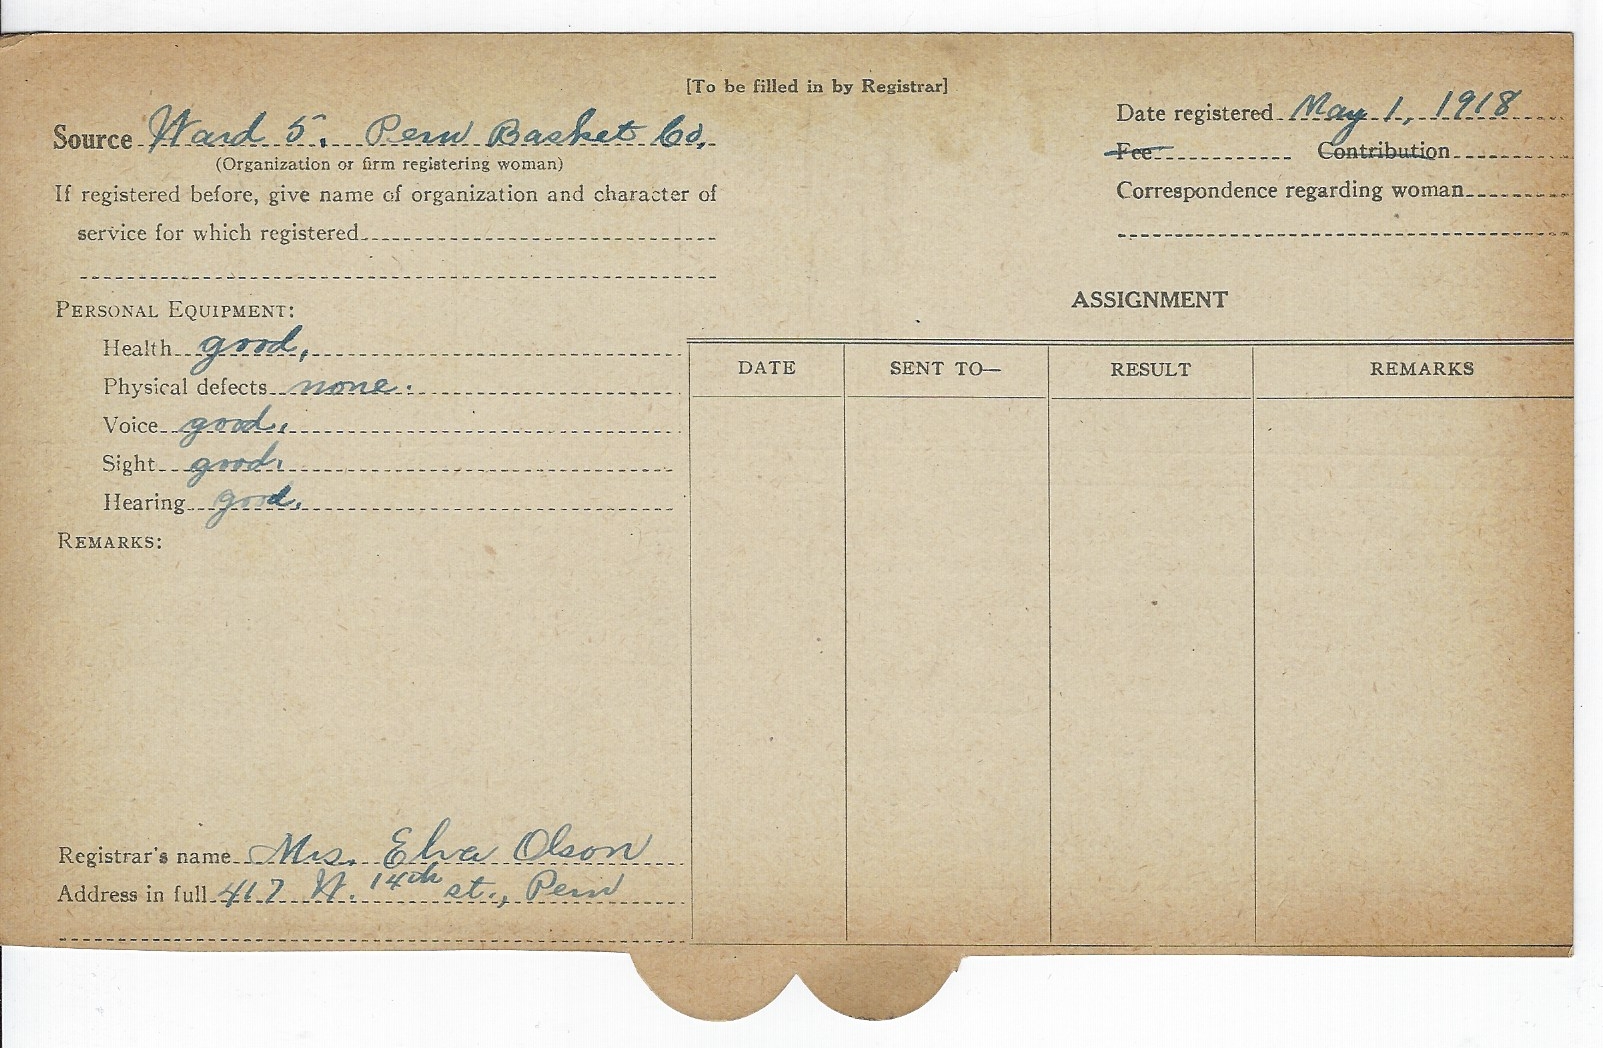 [To be filled in by Registrar]
Source Ward 5. Peru Basket Co.
(Organization or firm registering woman)
If registered before, give name of organization and character of
service for which registered
Date registered May 1, 1918
Fee Contribution
Correspondence regarding woman
PERSONAL EQUIPMENT:
Health good,
Physical defects none.
Voice good.
Sight good.
Hearing good.
REMARKS:
ASSIGNMENT
DATE SENT TO— RESULT REMARKS
Registrar's name Mrs. Elva Olson
Address in full 417 W. 14th st., Peru